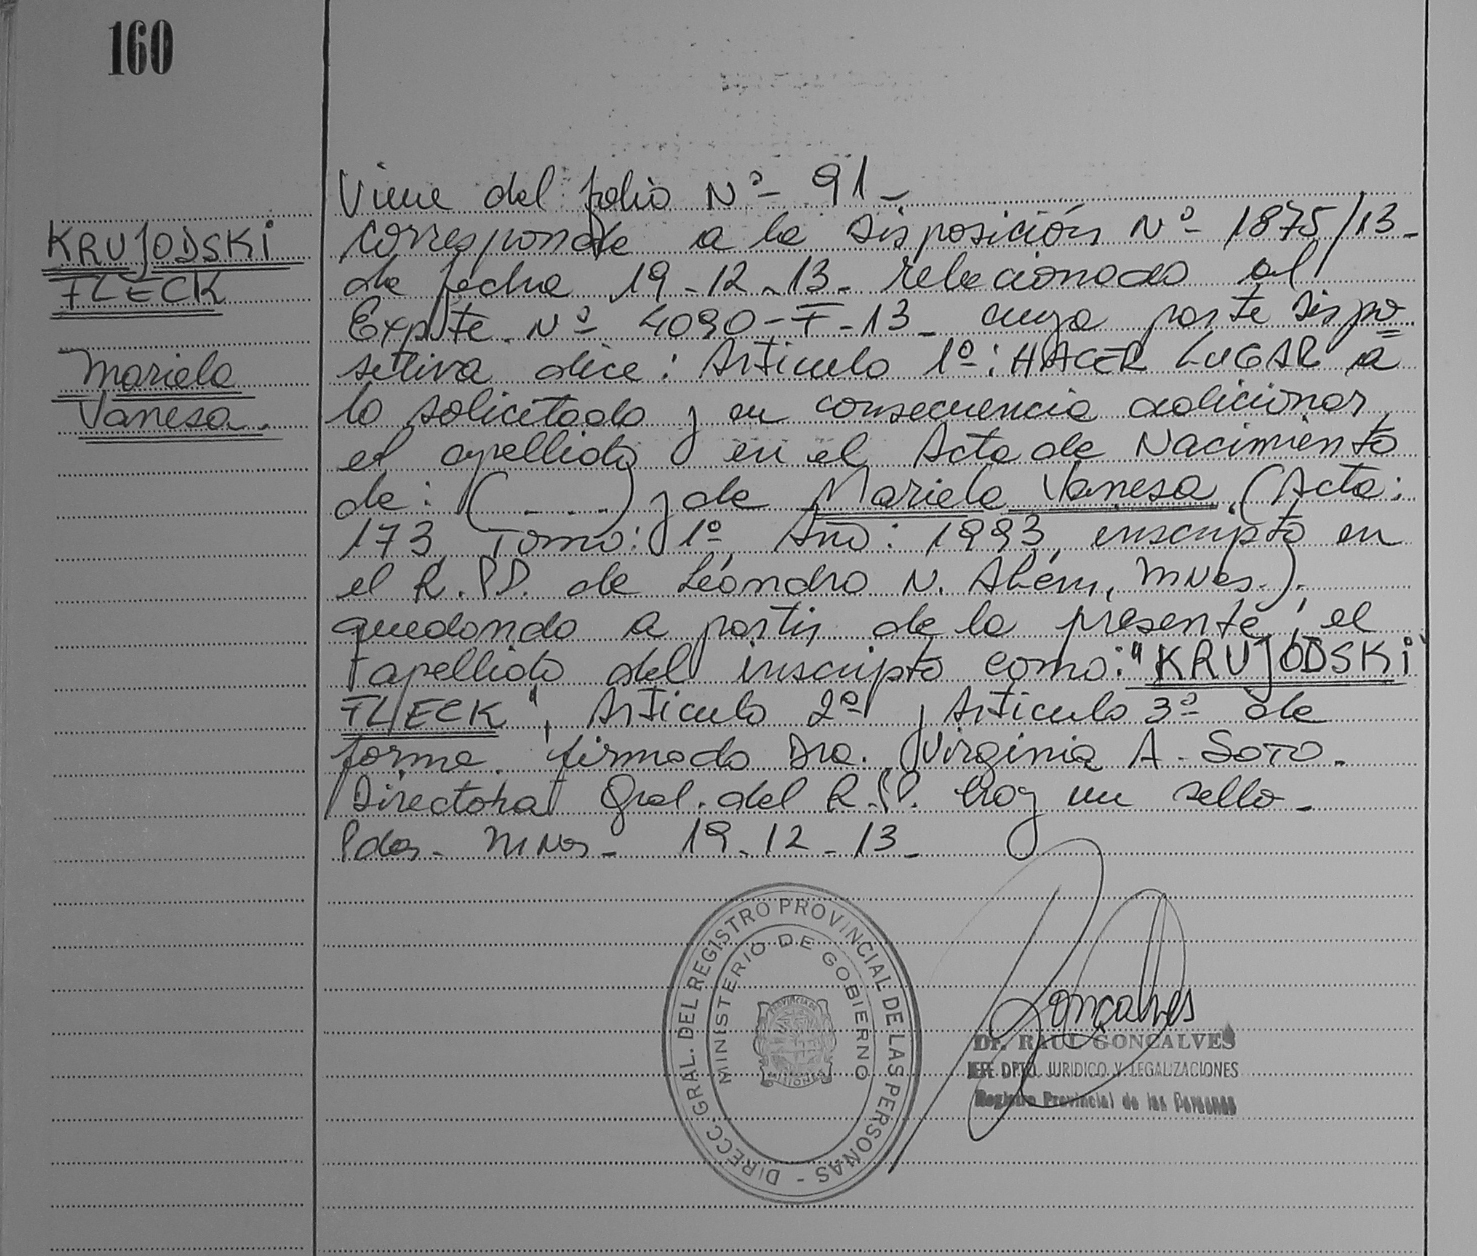 160
KRUJODSKI
FLECK
Mariela
Vanesa.
Viene del folio Nº 91 -
corresponde a la Disposición Nº 1875/13 -
de fecha 19-12-13- relacionado al
Expte. Nº 4090-F-13- cuya parte dispo=
sitiva dice: Artículo 1º: HACER LUGAR a
lo solicitado y en consecuencia adicionar
el apellido y en el Acta de Nacimiento
de: (....) y de Mariela Vanesa (Acta:
173, Tomo: 1º, Año: 1993, inscripto en
el R.PP. de Leandro N. Alem, Mnes.)
quedando a partir de la presente, el
apellido del inscripto como: "KRUJODSKI
FLECK", Artículo 2º y Artículo 3º de
forma. firmado Dra. Virginia A. SOTO.
Directora Gral. del R.P. Hay un sello -
Pdas - MNes - 19-12-13-
DIRECC. GRAL. DEL REGISTRO PROVINCIAL DE LAS PERSONAS -
MINISTERIO DE GOBIERNO
PROVINCIA DE
MISIONES
Gonçalves
Dr. RAUL GONCALVES
JEFE DPTO. JURIDICO Y LEGALIZACIONES
Registro Provincial de las Personas